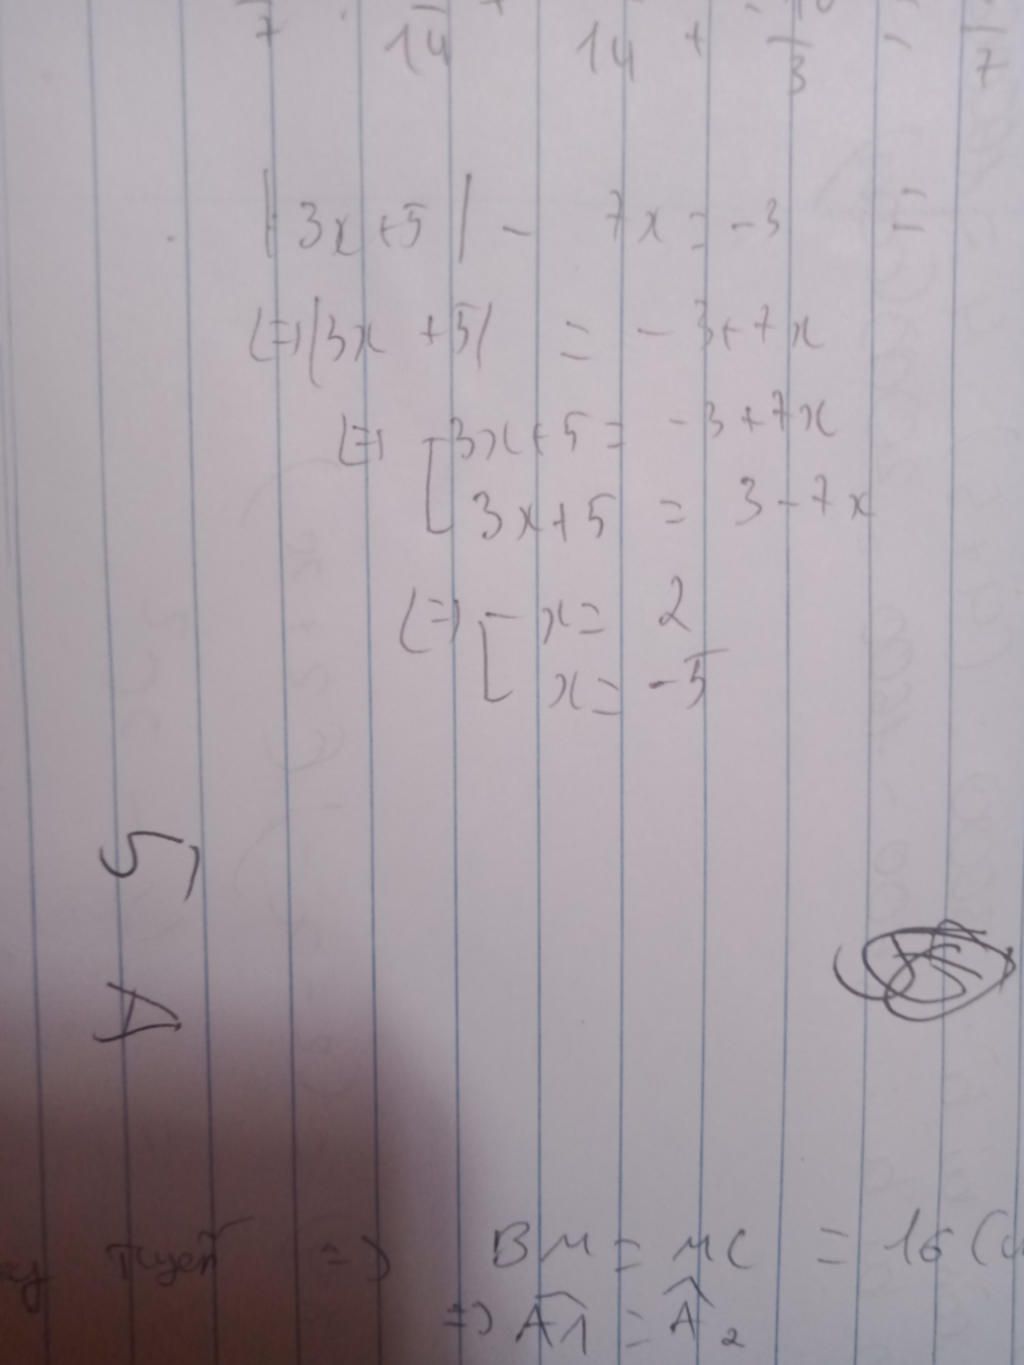 7 14 + 14 + 3 - 7
|3x+5| - 7x = -3 =
(=) |3x +5| = -3+7x
(=) [ 3x+5 = -3+7x
3x+5 = 3-7x
(=) [ x = 2
x = -5
5)
A
=) BM = MC = 16 (
=) Â1 = Â2